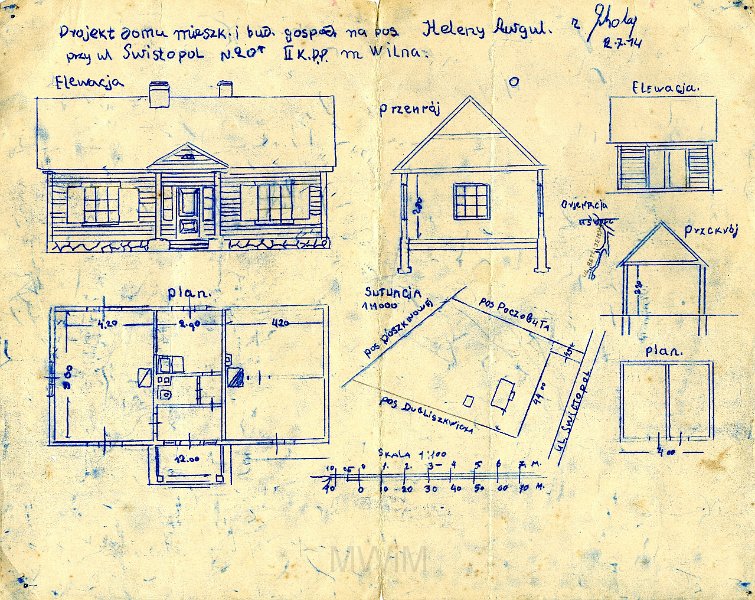 Projekt domu mieszk. i bud. gospod. na pos. Heleny Augul.
przy ul Świstopol N.20ᵃ II K.P.P. m Wilna.
2.7.14
Elewacja
Przekrój
Elewacja.
280
Orjentacja
Przekrój
plan.
4.20 2.90 420
8.00
12.00
SYTUACJA
1:1000
pos Poczobuta
pos Doszkowowej
pos Dubliszkwicza
44.00
ul. Swistopol
plan.
4.00
SKALA 1:100
10 0 1. 2 3 4 5 6 7. M.
10 0 10 20 30 40 50 60 70 M.
MWM